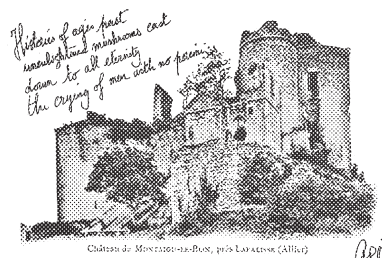 Histories of ages past
unenlightened mushrooms cast
down to all eternity
the crying of men with no poem
Château de MONTAIGU-LE-BLIN, près LAPALISSE (Allier)